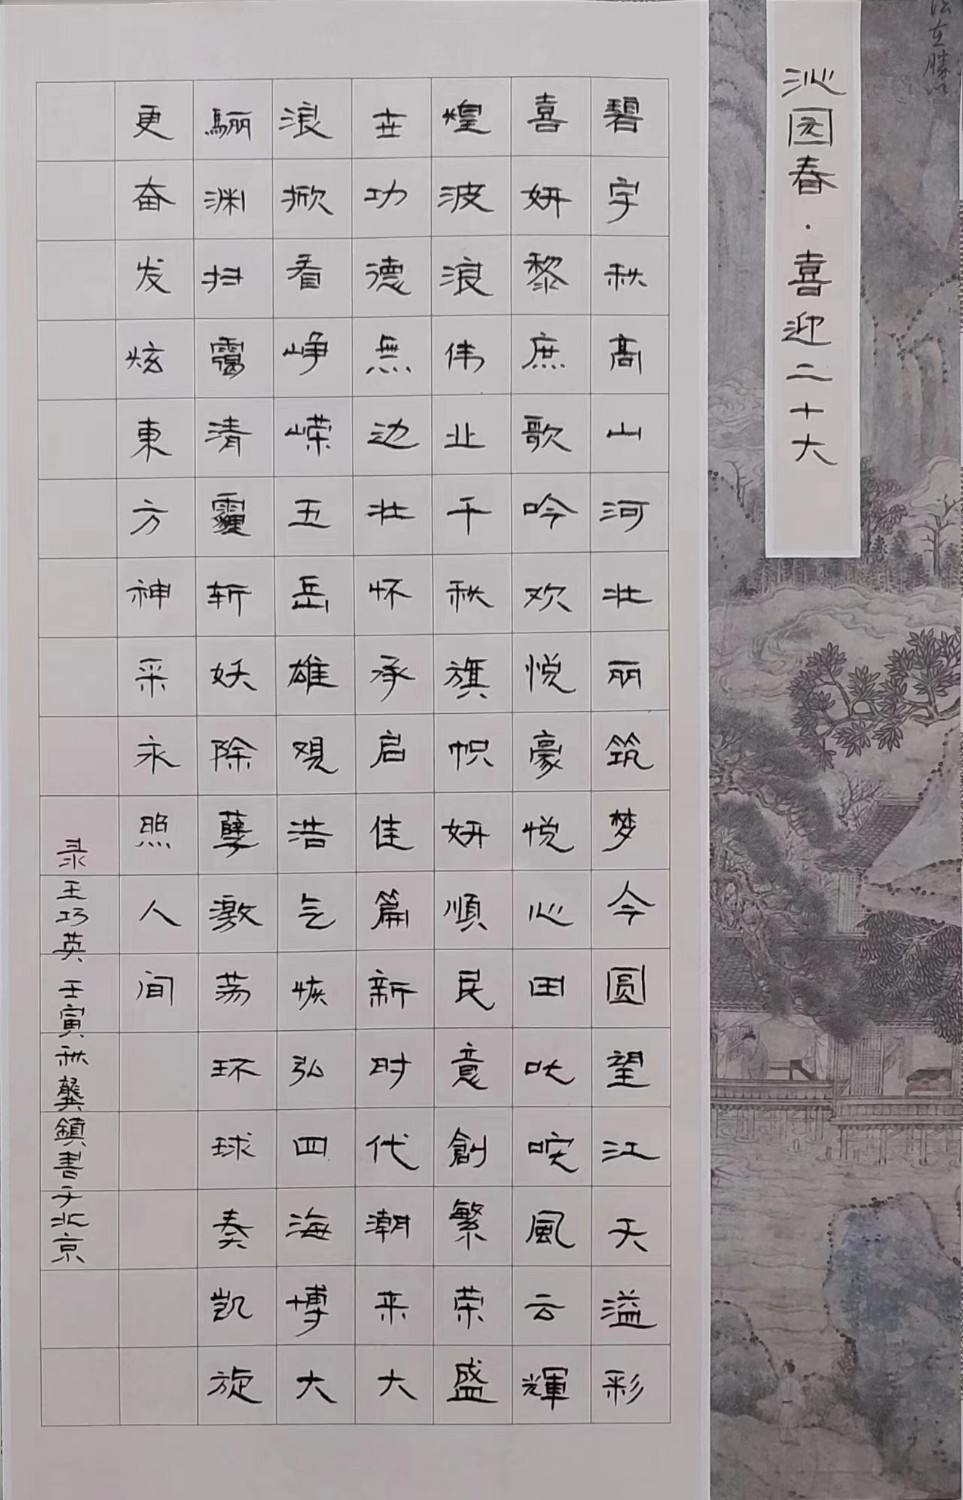 沁园春·喜迎二十大
碧宇秋高山河壮丽筑梦今圆望江天溢彩
喜妍黎庶歌吟欢悦豪悦心田吒咤風云輝
煌波浪伟业千秋旗帜妍順民意創繁荣盛
世功德無边壮怀承启佳篇新时代潮来大
浪掀看峥嵘五岳雄观浩气恢弘四海博大
骊渊扫霭清霾斩妖除孽激荡环球奏凯旋
更奋发炫東方神采永照人间
录王巧英 壬寅秋龔鎮書于北京